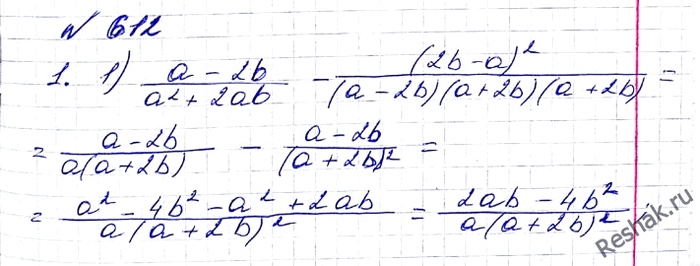 № 612
1. 1) (a - 2b)/(a² + 2ab) - (2b - a)²/((a - 2b)(a + 2b)(a + 2b)) =
= (a - 2b)/(a(a + 2b)) - (a - 2b)/(a + 2b)² =
= (a² - 4b² - a² + 2ab)/(a(a + 2b)²) = (2ab - 4b²)/(a(a + 2b)²)
Reshak.ru